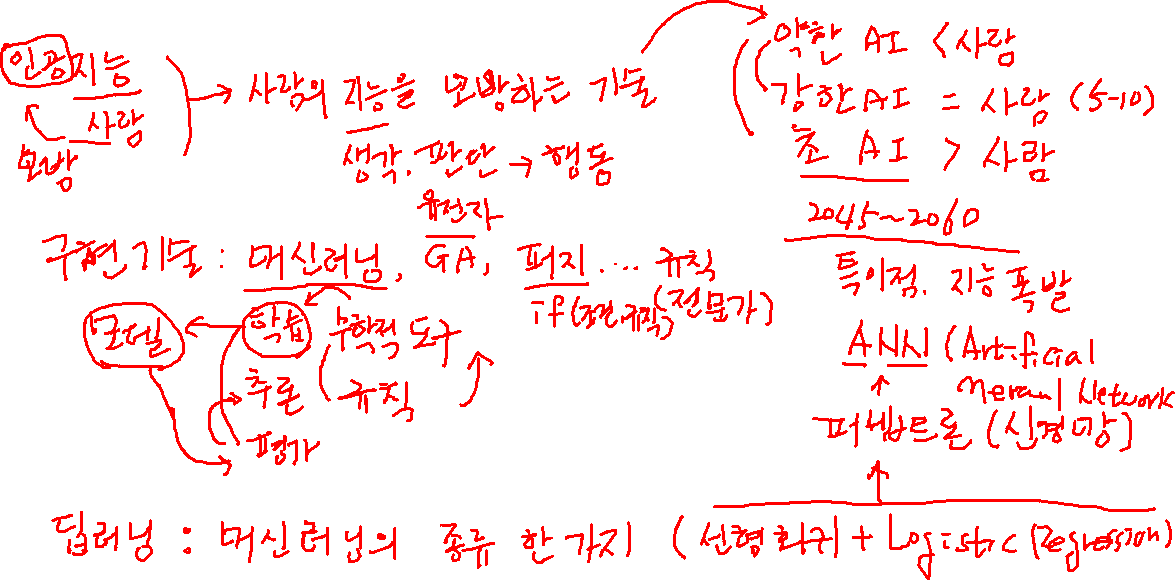 인공지능
사람
모방
→ 사람의 지능을 모방하는 기술
생각, 판단 → 행동
약한 AI < 사람
강한 AI = 사람 (5-10)
초 AI > 사람
2045~2060
특이점, 지능폭발
유전자
구현기술 : 머신러닝, GA, 퍼지 .... 규칙
if(조건,규칙) (전문가)
모델 학습 수학적 도구
추론 규칙
평가
ANN (Artificial
Nerual Network
퍼셉트론 (신경망)
딥러닝 : 머신러닝의 종류 한가지 (선형회귀 + Logistic Regression)